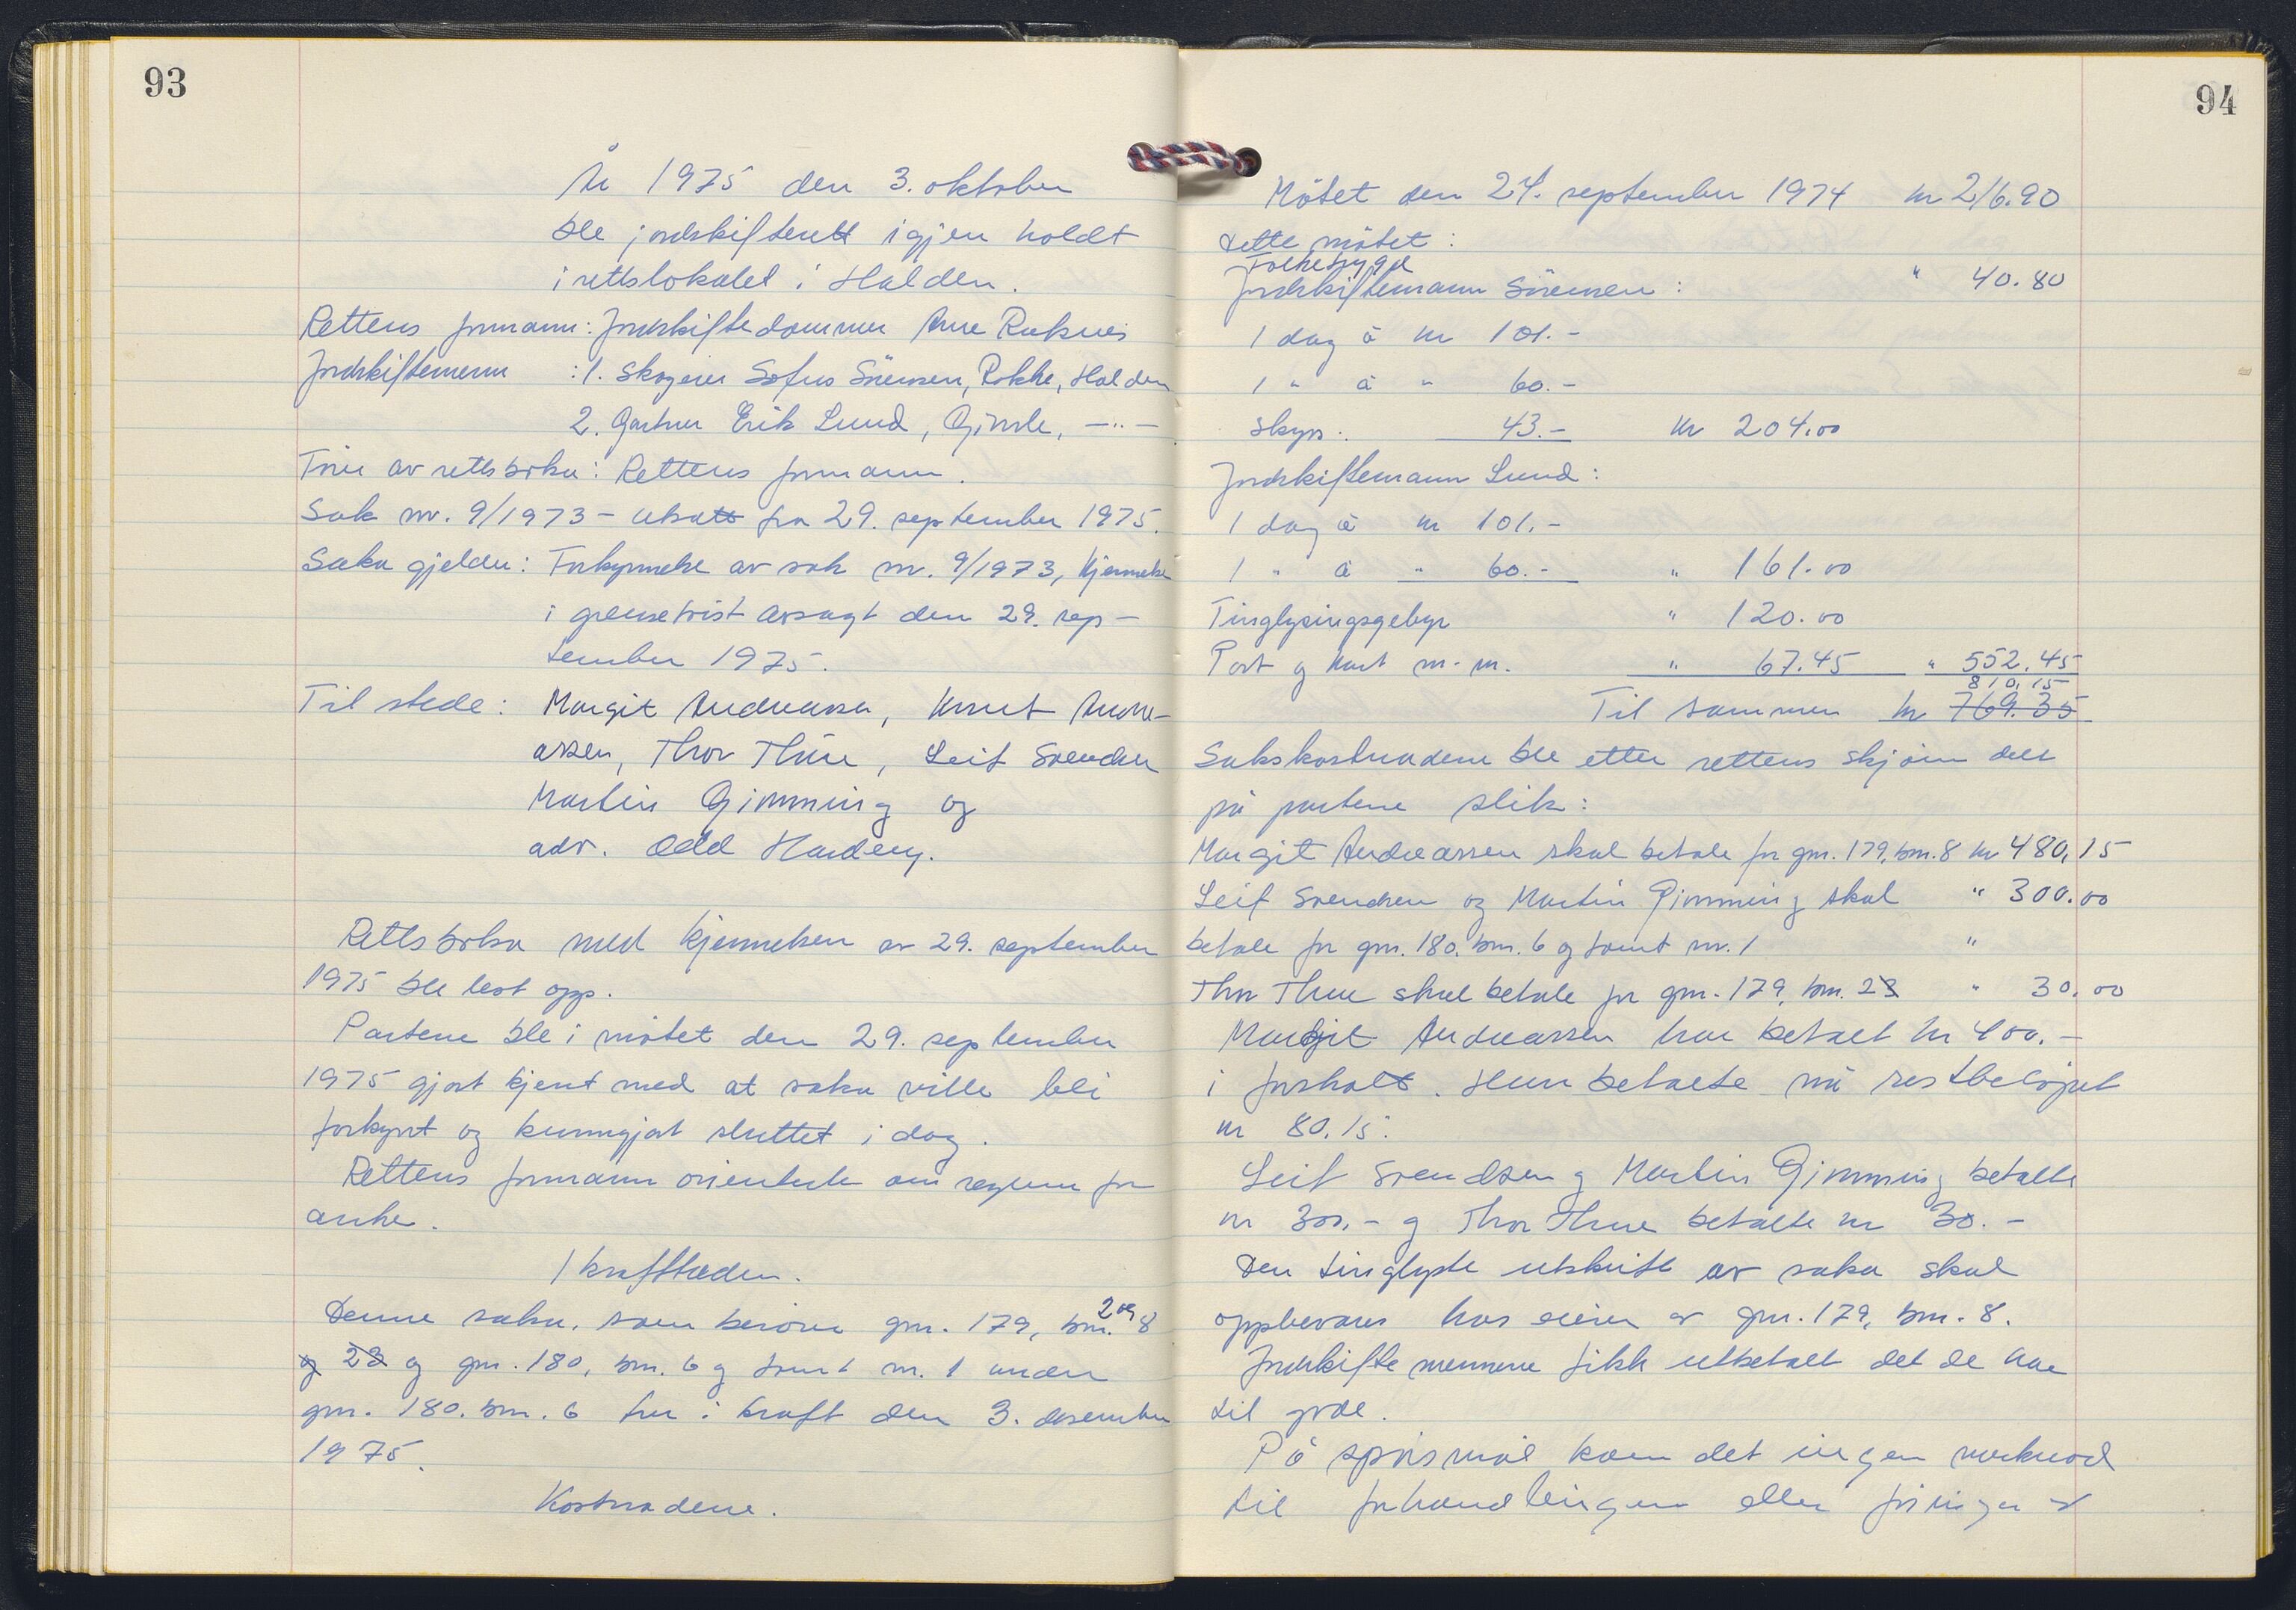 93
År 1975 den 3. oktober
ble jordskifterett igjen holdt
i rettslokalet i Halden.
Rettens formann: Jordskiftedommer Arne Raknes
Jordskiftemenn : 1. Skogeier Sofus Sörensen, Rokke, Halden
2. Gartner Erik Lund, Gimle, —"—
Förer av rettsboka: Rettens formann.
Sak nr. 9/1973 - utsatt fra 29. september 1975.
Saka gjelder: Forkynnelse av sak nr. 9/1973, kjennelse
i grensetvist avsagt den 29. sep-
tember 1975.
Til stede: Margit Andreassen, Knut Andre-
assen, Thor Thue, Leif Svendsen
Martin Gimming og
adv. Odd Hardeng.
Rettsboka med kjennelsen av 29. september
1975 ble lest opp.
Partene ble i mötet den 29. september
1975 gjort kjent med at saka ville bli
forkynt og kunngjort sluttet i dag.
Rettens formann orienterte om reglene for
anke.
Ikrafttreden.
2 og
Denne saka, som berörer gnr. 179, bnr. 8
og 23 og gnr. 180, bnr. 6 og tomt nr. 1 under
gnr. 180. bnr. 6 trer i kraft den 3. desember
1975.
Kostnadene.
94
Mötet den 24. september 1974 kr 216.90
Dette mötet:
Folketrygd
Jordskiftemann Sörensen: " 40.80
1 dag à kr 101.-
1 " à " 60.-
Skyss: 43.- kr 204.00
Jordskiftemann Lund:
1 dag à kr 101.-
1 " à " 60.- " 161.00
Tinglysingsgebyr " 120.00
Port og kart m.m. " 67.45 " 552.45
810,15
Til sammen kr 769.35
Sakskostnadene ble etter rettens skjönn delt
på partene slik:
Margit Andreassen skal betale for gnr. 179, bnr. 8 kr 480,15
Leif Svendsen og Martin Gimming skal " 300.00
betale for gnr. 180. bnr. 6 og tomt nr. 1 "
Thor Thue skal betale for gnr. 179, bnr. 23 " 30.00
Margit Andreassen har betalt kr 400.-
i forskott. Hun betalte nå restbelöpet
kr 80.15.
Leif Svendsen og Martin Gimming betalte
kr 300.- og Thor Thue betalte kr 30.-
Den tinglyste utskrift av saka skal
oppbevares hos eieren av gnr. 179, bnr. 8.
Jordskiftemennene fikk utbetalt det de har
til gode.
På spörsmål kom det ingen merknad
til forhandlingene eller föringen av